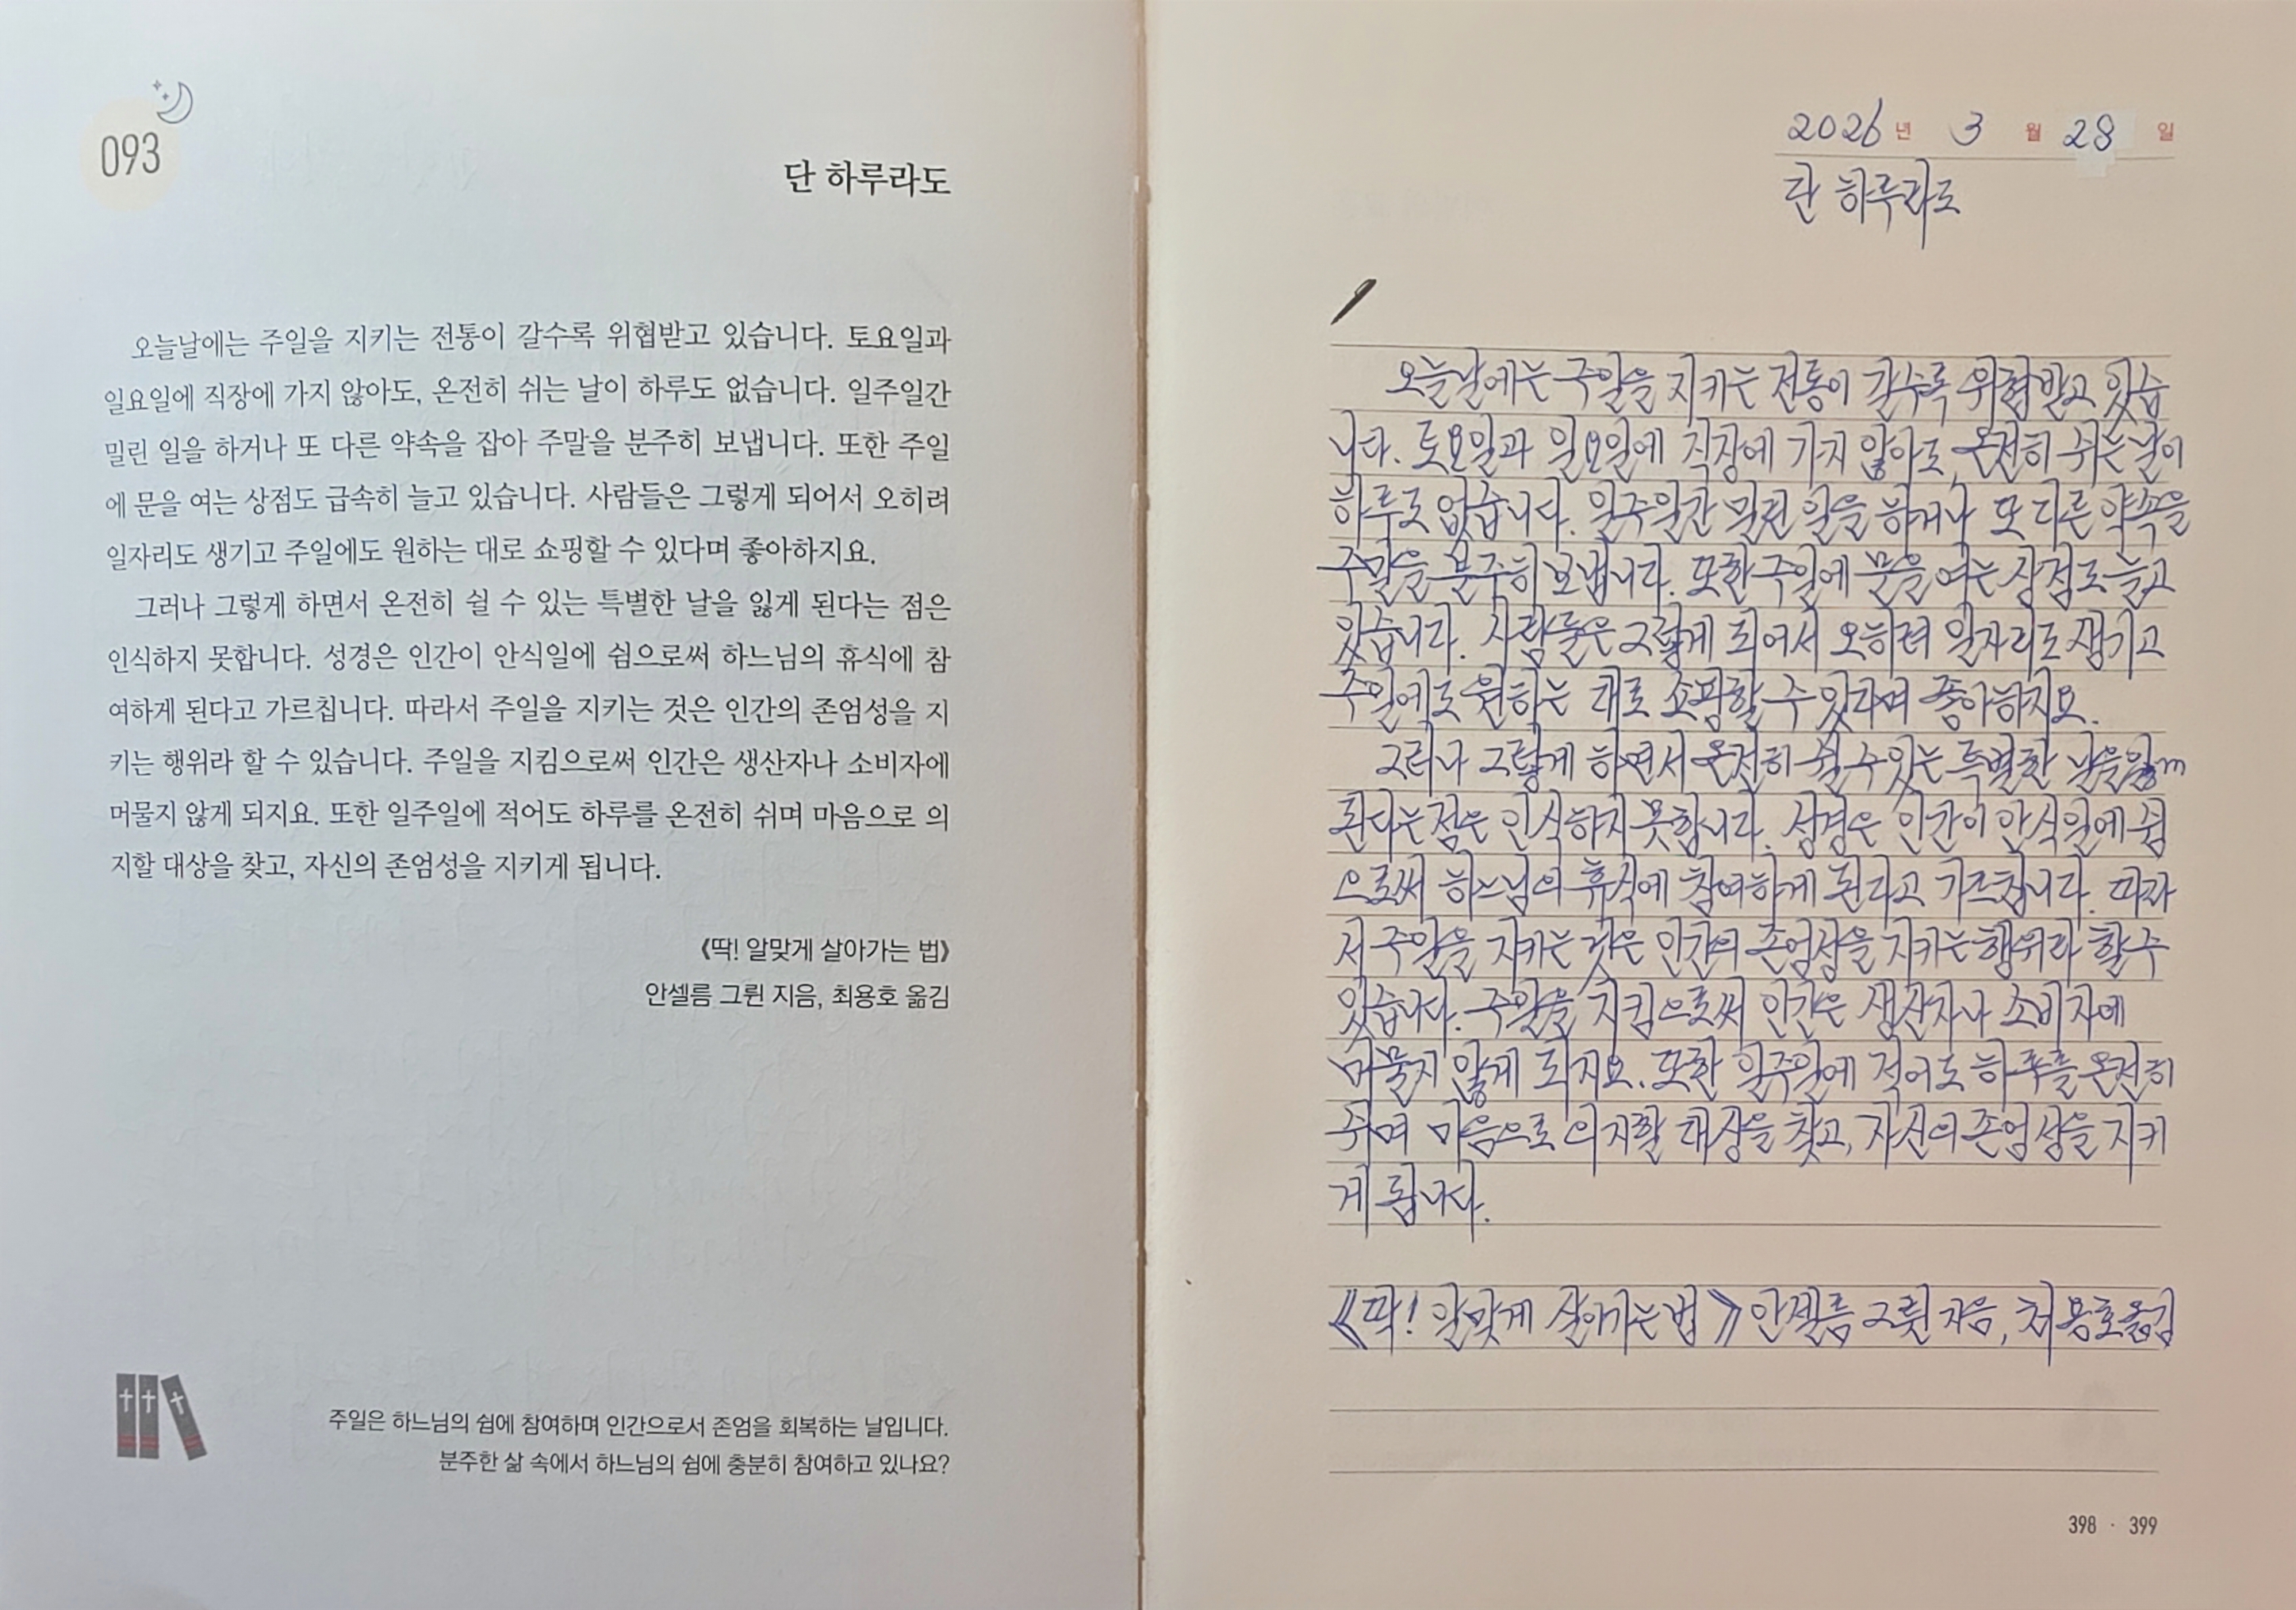 093
단 하루라도
오늘날에는 주일을 지키는 전통이 갈수록 위협받고 있습니다. 토요일과
일요일에 직장에 가지 않아도, 온전히 쉬는 날이 하루도 없습니다. 일주일간
밀린 일을 하거나 또 다른 약속을 잡아 주말을 분주히 보냅니다. 또한 주일
에 문을 여는 상점도 급속히 늘고 있습니다. 사람들은 그렇게 되어서 오히려
일자리도 생기고 주일에도 원하는 대로 쇼핑할 수 있다며 좋아하지요.
그러나 그렇게 하면서 온전히 쉴 수 있는 특별한 날을 잃게 된다는 점은
인식하지 못합니다. 성경은 인간이 안식일에 쉼으로써 하느님의 휴식에 참
여하게 된다고 가르칩니다. 따라서 주일을 지키는 것은 인간의 존엄성을 지
키는 행위라 할 수 있습니다. 주일을 지킴으로써 인간은 생산자나 소비자에
머물지 않게 되지요. 또한 일주일에 적어도 하루를 온전히 쉬며 마음으로 의
지할 대상을 찾고, 자신의 존엄성을 지키게 됩니다.
《딱! 알맞게 살아가는 법》
안셀름 그륀 지음, 최용호 옮김
주일은 하느님의 쉼에 참여하며 인간으로서 존엄을 회복하는 날입니다.
분주한 삶 속에서 하느님의 쉼에 충분히 참여하고 있나요?
2026년 3월 28일
단 하루라도
오늘날에는 주일을 지키는 전통이 갈수록 위협받고 있습
니다. 토요일과 일요일에 직장에 가지 않아도, 온전히 쉬는 날이
하루도 없습니다. 일주일간 밀린 일을 하거나 또 다른 약속을
주말을 분주히 보냅니다. 또한 주일에 문을 여는 상점도 늘고
있습니다. 사람들은 그렇게 되어서 오히려 일자리도 생기고
주일에도 원하는 대로 쇼핑할 수 있다며 좋아하지요.
그러나 그렇게 하면서 온전히 쉴 수 있는 특별한 날을
된다는 점은 인식하지 못합니다. 성경은 인간이 안식일에 쉼
으로써 하느님의 휴식에 참여하게 된다고 가르칩니다. 따라
서 주일을 지키는 것은 인간의 존엄성을 지키는 행위라 할 수
있습니다. 주일을 지킴으로써 인간은 생산자나 소비자에
머물지 않게 되지요. 또한 일주일에 적어도 하루를 온전히
쉬며 마음으로 의지할 대상을 찾고, 자신의 존엄성을 지키
게 됩니다.
《딱! 알맞게 살아가는 법》 안셀름 그륀 지음, 최용호 옮김
398 · 399